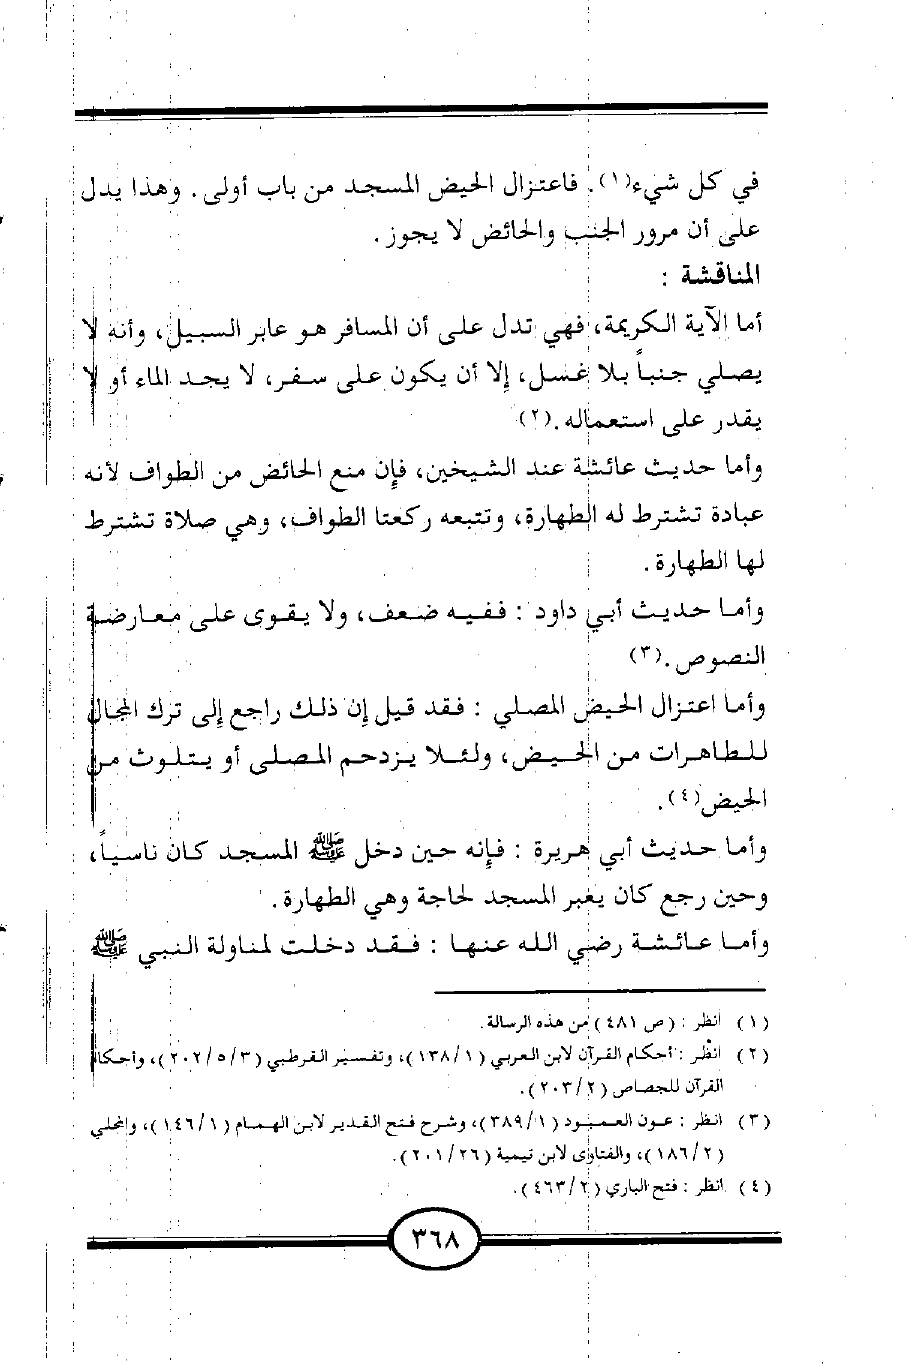 في كل شيء(١). فاعتزال الحيض المسجد من باب أولى. وهذا يدل
على أن مرور الجنب والحائض لا يجوز.
المناقشة :
أما الآية الكريمة، فهي تدل على أن المسافر هو عابر السبيل، وأنه لا
يصلي جنباً بلا غسل، إلا أن يكون على سفر، لا يجد الماء أو لا
يقدر على استعماله.(٢)
وأما حديث عائشة عند الشيخين، فإن منع الحائض من الطواف لأنه
عبادة تشترط له الطهارة، وتتبعه ركعتا الطواف، وهي صلاة تشترط
لها الطهارة.
وأما حديث أبي داود : ففيه ضعف، ولا يقوى على معارضة
النصوص.(٣)
وأما اعتزال الحيض المصلي : فقد قيل إن ذلك راجع إلى ترك المجال
للطاهرات من الحيض، ولئلا يزدحم المصلى أو يتلوث من
الحيض(٤).
وأما حديث أبي هريرة : فإنه حين دخل ﷺ المسجد كان ناسياً،
وحين رجع كان يعبر المسجد لحاجة وهي الطهارة.
وأما عائشة رضي الله عنها : فقد دخلت لمناولة النبي ﷺ
(١) انظر : (ص ٤٨١) من هذه الرسالة.
(٢) انظر : أحكام القرآن لابن العربي (١٣٨/١)، وتفسير القرطبي (٢٠٢/٥/٣)، وأحكام
القرآن للجصاص (٢٠٣/٢).
(٣) انظر : عون المعبود (٣٨٩/١)، وشرح فتح القدير لابن الهمام (١٤٦/١)، والمحلي
(١٨٦/٢)، والفتاوى لابن تيمية (٢٠١/٢٦).
(٤) انظر : فتح الباري (٤٦٣/٢).
٣٦٨